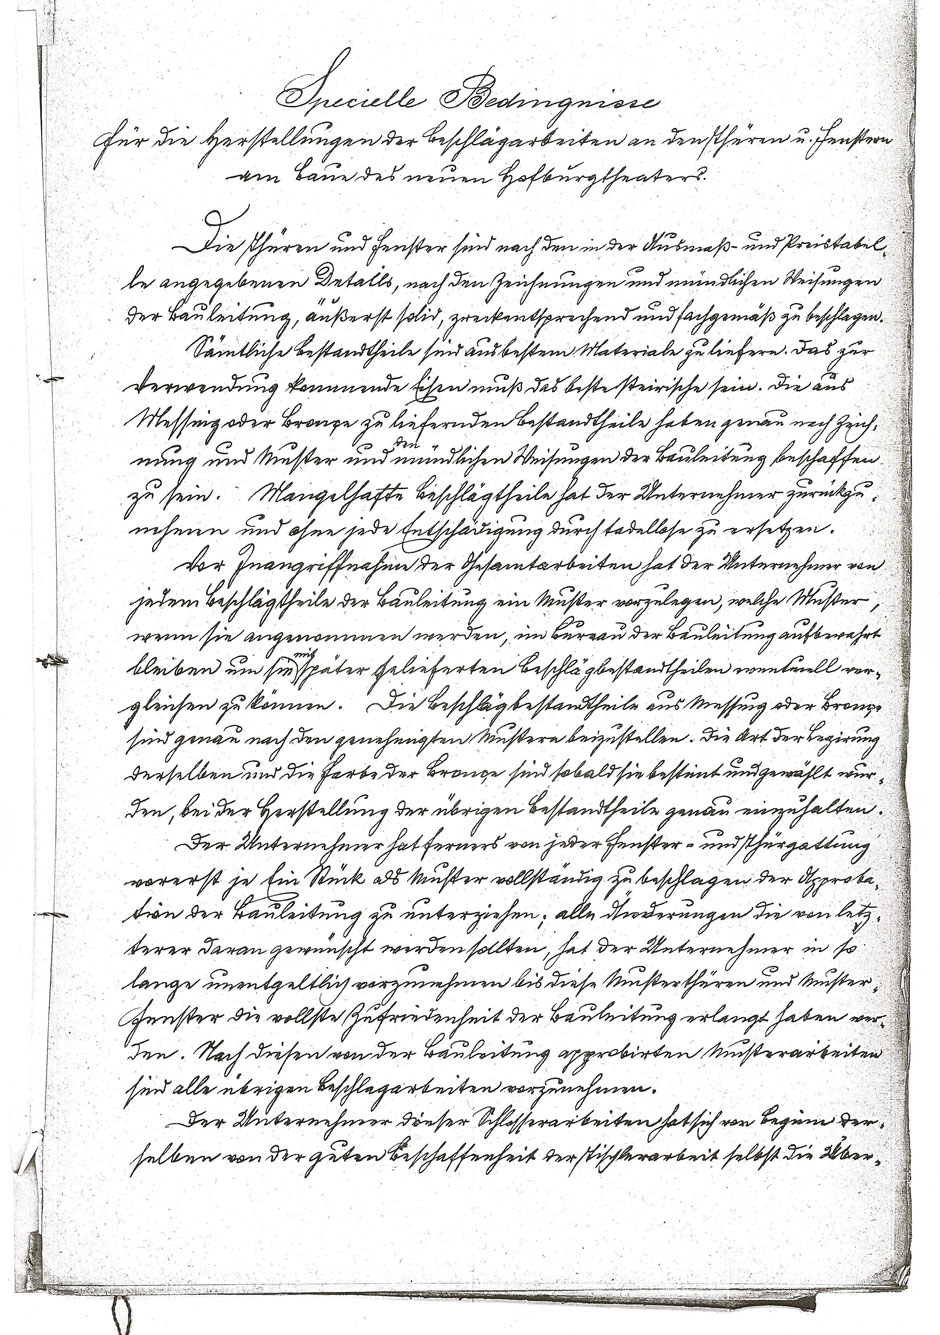 Specielle Bedingnisse
für die Herstellungen der Beschlägarbeiten an den Thüren u. Fenstern
am Baue des neuen Hofburgtheaters.
Die Thüren und Fenster sind nach den in der Ausmaß- und Preistabel-
le angegebenen Details, nach den Zeichnungen und mündlichen Weisungen
der Bauleitung, äußerst solid, zweckentsprechend und fachgemäß zu beschlagen.
Sämtliche Bestandtheile sind aus bestem Materiale zu liefern. Das zur
Verwendung kommende Eisen muß das beste steirische sein. Die aus
Messing oder Bronze zu liefernden Bestandtheile haben genau nach Zeich-
nung und Muster und den mündlichen Weisungen der Bauleitung beschaffen
zu sein. Mangelhafte Beschlägtheile hat der Unternehmer zurückzu-
nehmen und ohne jede Entschädigung durch tadellose zu ersetzen.
Vor Inangriffnahme der Gesamtarbeiten hat der Unternehmer von
jedem Beschlägtheile der Bauleitung ein Muster vorzulegen, welche Muster,
wenn sie angenommen werden, im Bureau der Bauleitung aufbewahrt
bleiben um sie mit später gelieferten Beschlägbestandtheilen eventuell ver-
gleichen zu können. Die Beschlägbestandtheile aus Messing oder Bronze
sind genau nach den genehmigten Mustern beizustellen. Die Art der Legirung
derselben und die Farbe der Bronze sind sobald sie bestimt und gewählt wur-
den, bei der Herstellung der übrigen Bestandtheile genau einzuhalten.
Der Unternehmer hat ferners von jeder Fenster- und Thürgattung
vorerst je Ein Stück als Muster vollständig zu beschlagen der Approba-
tion der Bauleitung zu unterziehen; alle Änderungen die von letz-
terer daran gewünscht werden sollten, hat der Unternehmer in so
lange unentgeltlich vorzunehmen bis diese Musterthüren und Muster-
fenster die vollste Zufriedenheit der Bauleitung erlangt haben wer-
den. Nach diesen von der Bauleitung approbirten Musterarbeiten
sind alle übrigen Beschlagarbeiten vorzunehmen.
Der Unternehmer dieser Schlosserarbeiten hat sich vor Beginn der-
selben von der guten Beschaffenheit der Tischlerarbeit selbst die Über-